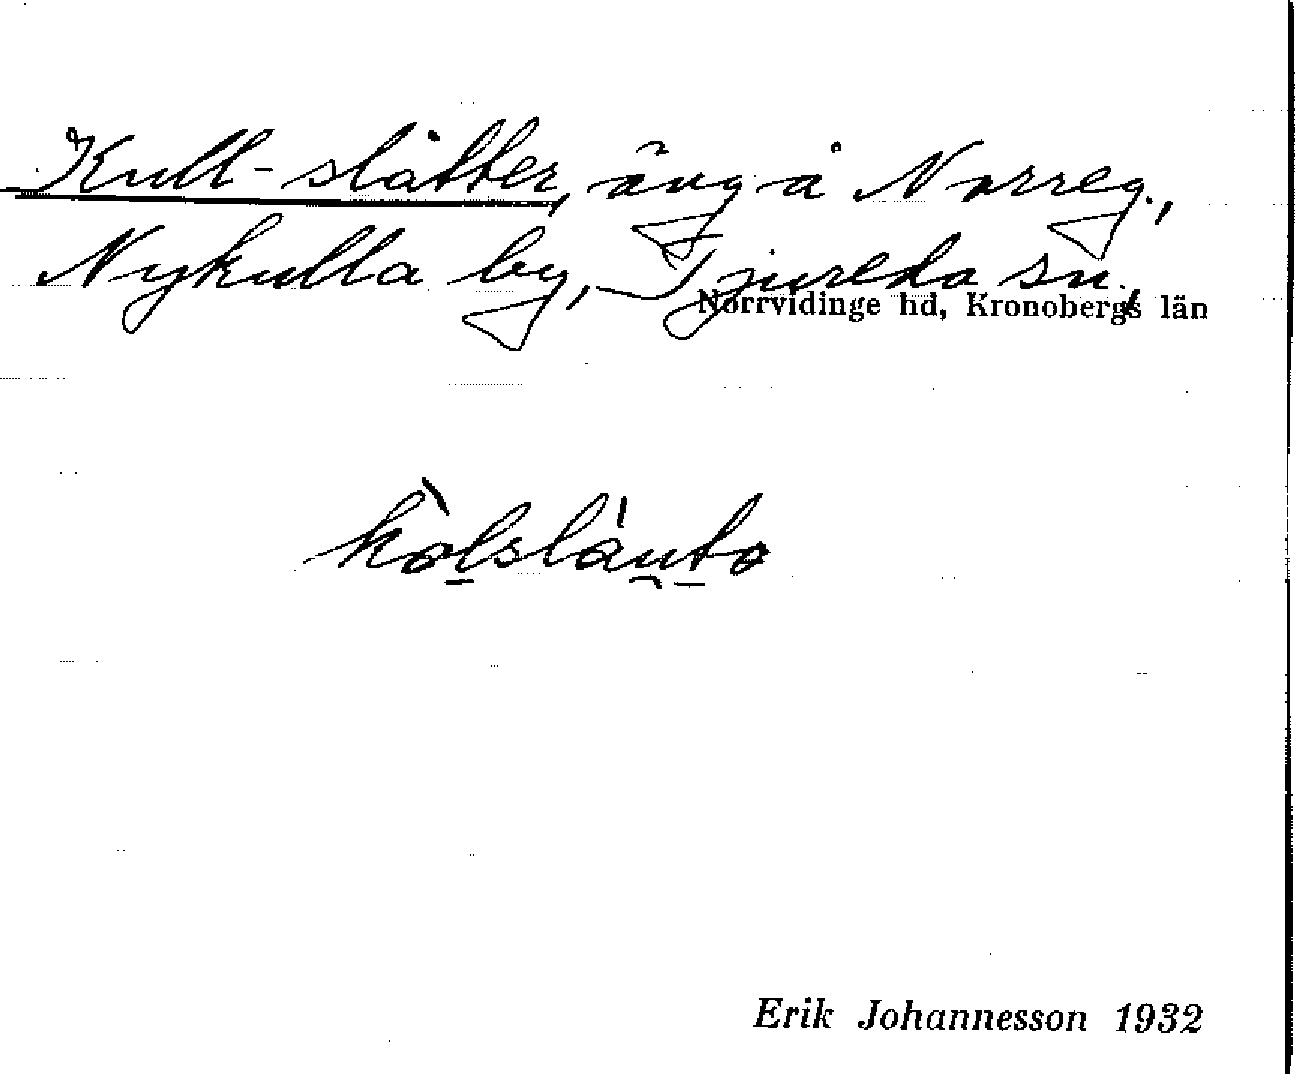 Kull-slåtter, äng å Norreg.,
Nykulla by, Tjureda sn.,
Norrvidinge hd, Kronobergs län
Erik Johannesson 1932